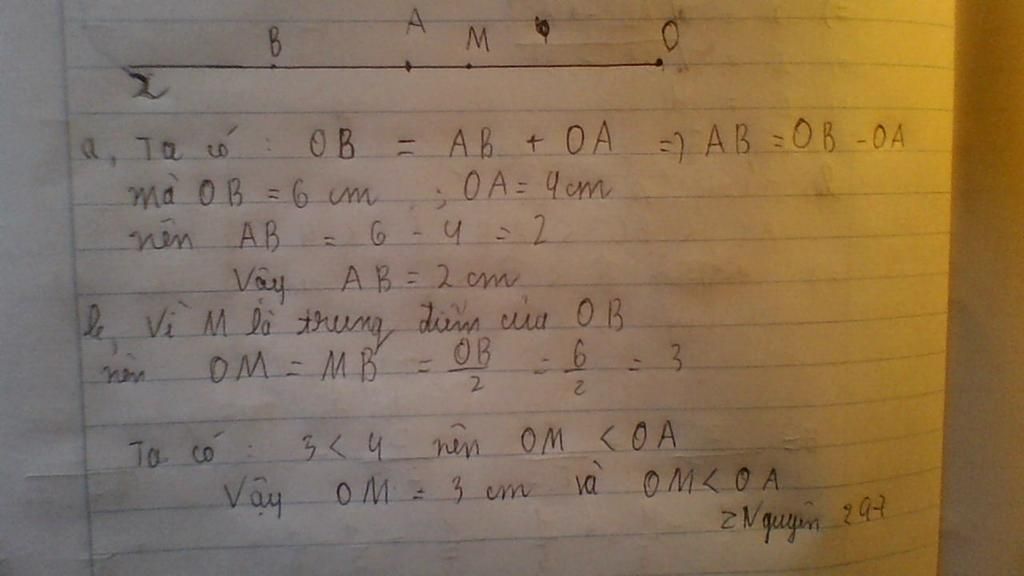 B A M O
x
a, Ta có : OB = AB + OA => AB = OB - OA
mà OB = 6 cm ; OA = 4cm
nên AB = 6 - 4 = 2
Vậy AB = 2 cm
b, Vì M là trung điểm của OB
nên OM = MB = OB/2 = 6/2 = 3
Ta có : 3 < 4 nên OM < OA
Vậy OM = 3 cm và OM < OA